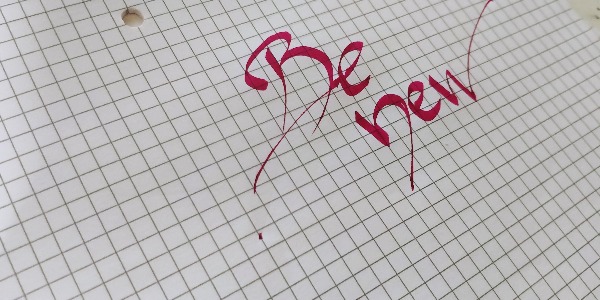 Be
new